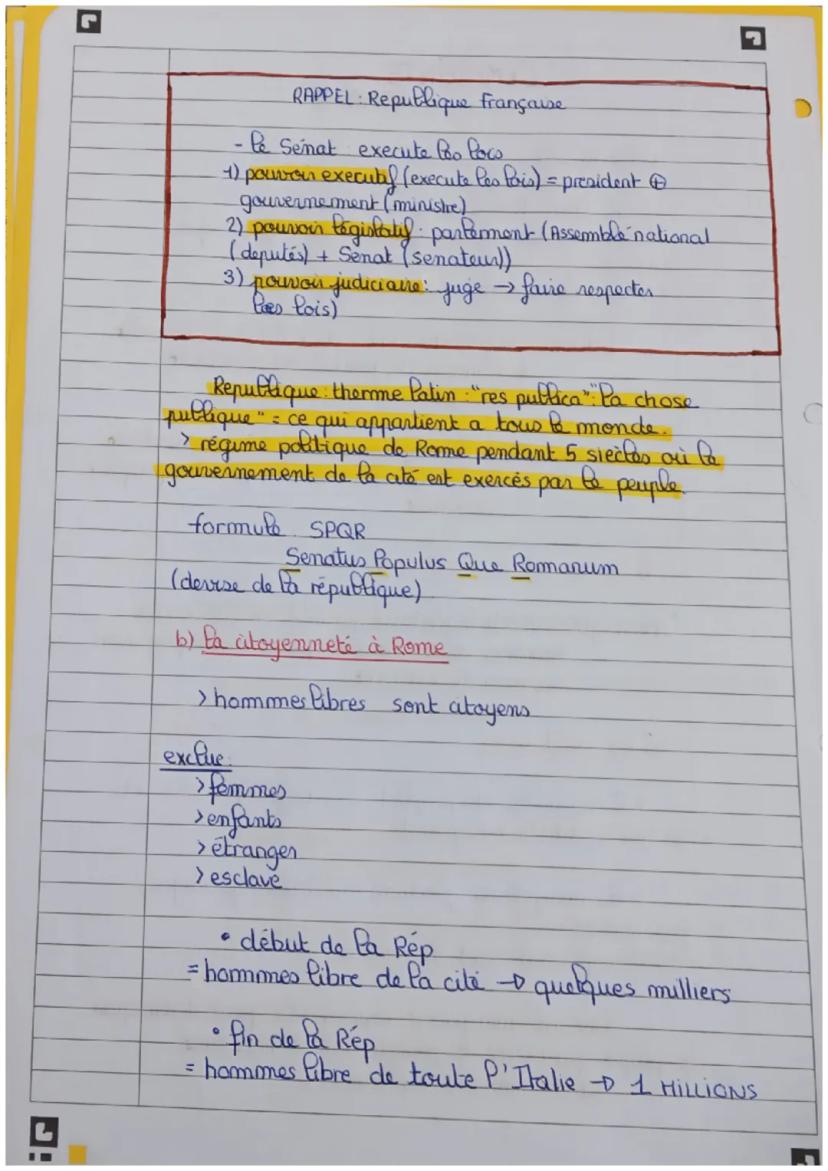 RAPPEL : Republique française
- le Sénat execute les locs
1) pouvoir executif (execute les lois) = president ⊕
gouvernement (ministre)
2) pouvoir législatif : parlement (Assemblé national
(deputés) + Senat (senateur))
3) pouvoir judiciaire : juge → faire respecter
les lois)
Republique : therme latin : "res publica" : "la chose
publique" = ce qui appartient a tous le monde.
> régime politique de Rome pendant 5 siècles où le
gouvernement de la cité est exercés par le peuple.
formule SPQR
Senatus Populus Que Romanum
(devise de la république)
b) la citoyenneté à Rome
> hommes libres sont citoyens
exclue :
> femmes
> enfants
> étranger
> esclave
• début de la Rép
= hommes libre de la cité → quelques milliers
• fin de la Rép
= hommes libre de toute l'Italie → 1 MILLIONS